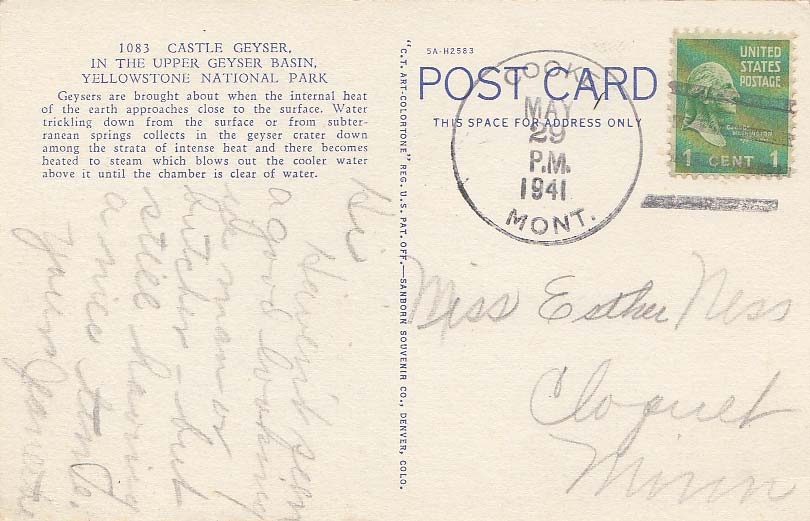 1083 CASTLE GEYSER,
IN THE UPPER GEYSER BASIN,
YELLOWSTONE NATIONAL PARK
Geysers are brought about when the internal heat
of the earth approaches close to the surface. Water
trickling down from the surface or from subter-
ranean springs collects in the geyser crater down
among the strata of intense heat and there becomes
heated to steam which blows out the cooler water
above it until the chamber is clear of water.
Hi
Haven't seen
a good looking
man or
butcher - but
still having
a nice time.
Your
"C.T. ART-COLORTONE" REG. U.S. PAT. OFF.—SANBORN SOUVENIR CO., DENVER, COLO.
5A-H2583
POST CARD
THIS SPACE FOR ADDRESS ONLY
COOKE
MAY
29
P.M.
1941
MONT.
UNITED
STATES
POSTAGE
1 CENT 1
Miss Esther Ness
Cloquet
Minn